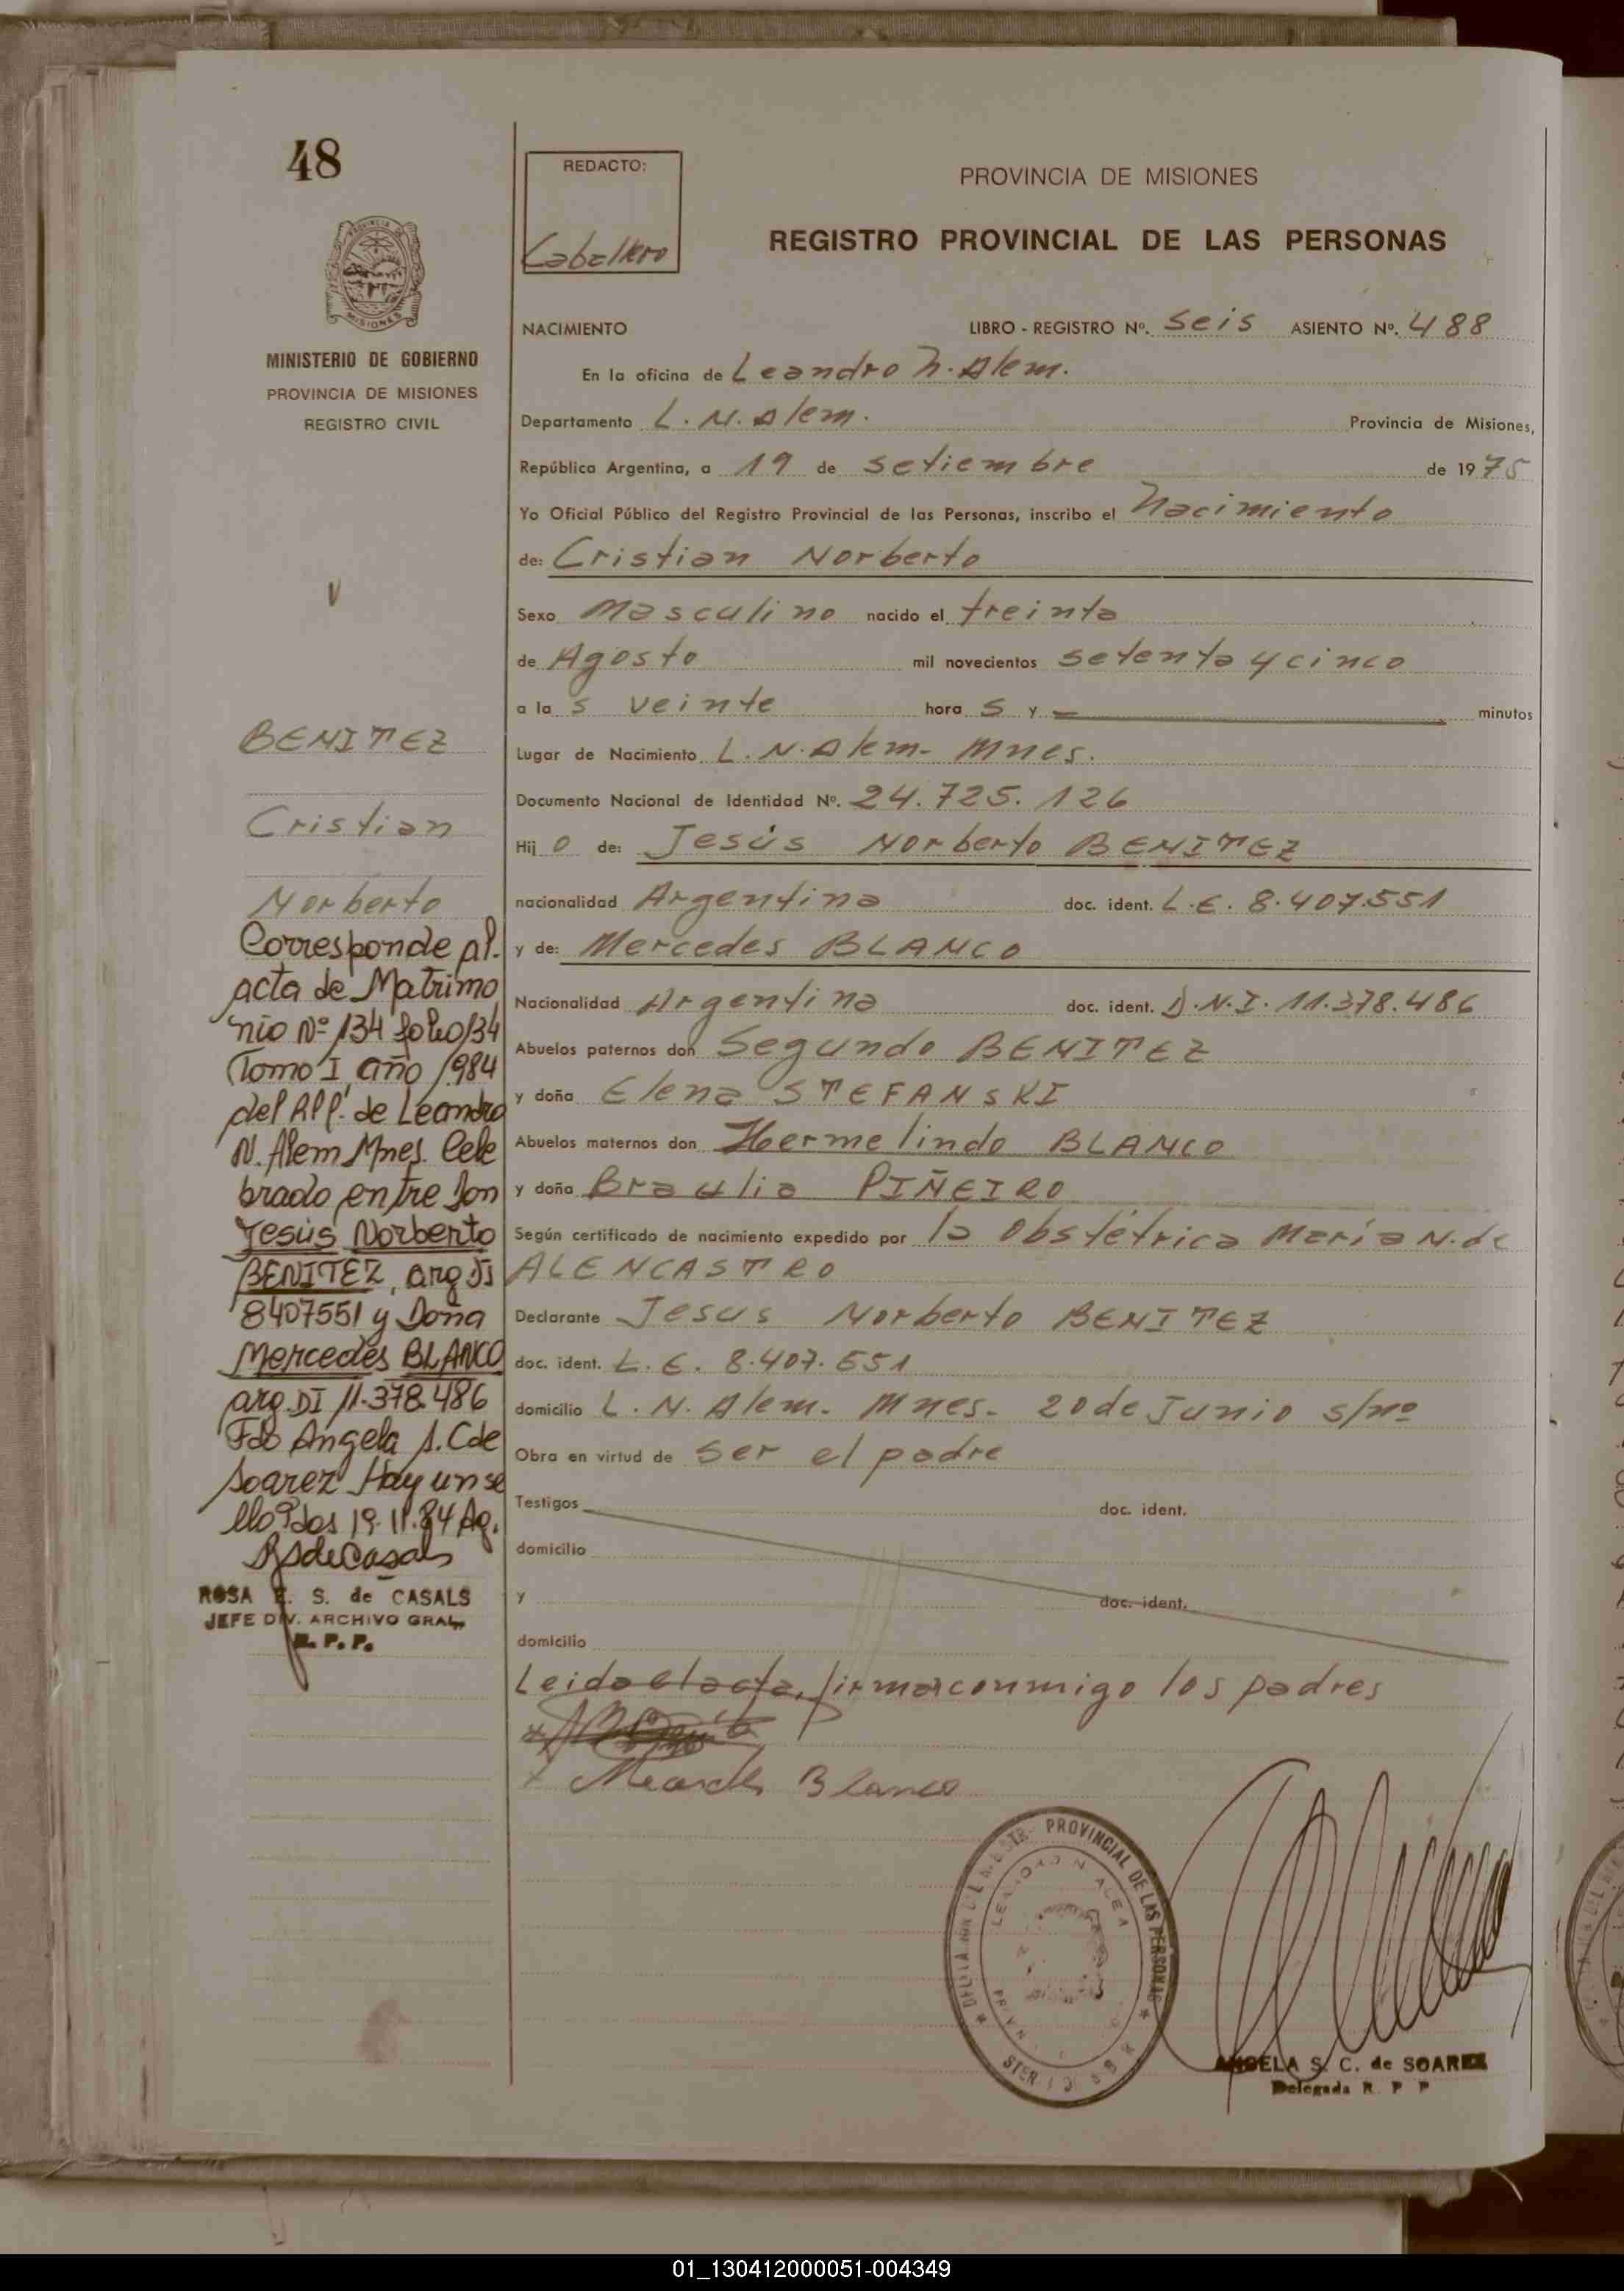 48
PROVINCIA DE MISIONES
MINISTERIO DE GOBIERNO
PROVINCIA DE MISIONES
REGISTRO CIVIL
BENITEZ
Cristian
Norberto
Corresponde al
acta de Matrimo
nio Nº 134 folio 134
Tomo I, año 1984
del RPP. de Leandro
N. Alem Mnes. Cele
brado entre Don
Jesús Norberto
BENITEZ, arg DI
8407551 y Doña
Mercedes BLANCO
arg. DI 11.378.486
Fdo Angela S. C de
Soarez Hay un se
llo Pdas 19.11.84 Ag.
RSdeCasals
ROSA E. S. de CASALS
JEFE DIV. ARCHIVO GRAL.
R. P. P.
REDACTO:
Caballero
PROVINCIA DE MISIONES
REGISTRO PROVINCIAL DE LAS PERSONAS
NACIMIENTO LIBRO - REGISTRO Nº. Seis ASIENTO Nº. 488
En la oficina de Leandro N. Alem.
Departamento L. N. Alem. Provincia de Misiones,
República Argentina, a 19 de Setiembre de 1975
Yo Oficial Público del Registro Provincial de las Personas, inscribo el Nacimiento
de: Cristian Norberto
Sexo Masculino nacido el treinta
de Agosto mil novecientos setenta y cinco
a la s veinte hora s y — minutos
Lugar de Nacimiento L. N. Alem - Mnes.
Documento Nacional de Identidad Nº. 24.725.126
Hij o de: Jesús Norberto BENITEZ
nacionalidad Argentina doc. ident. L.E. 8.407.551
y de: Mercedes BLANCO
Nacionalidad Argentina doc. ident. D.N.I. 11.378.486
Abuelos paternos don Segundo BENITEZ
y doña Elena STEFANSKI
Abuelos maternos don Hermelindo BLANCO
y doña Braulia PIÑEIRO
Según certificado de nacimiento expedido por la Obstétrica María N. de
ALENCASTRO
Declarante Jesus Norberto BENITEZ
doc. ident. L.E. 8.407.551
domicilio L. N. Alem. Mnes. 20 de Junio s/nº
Obra en virtud de ser el padre
Testigos doc. ident.
domicilio
y doc. ident.
domicilio
Leida el acta, firman conmigo los padres
Mercedes Blanco
PROVINCIAL DE LAS PERSONAS
ANGELA S. C. de SOAREZ
Delegada R. P. P
01_130412000051-004349